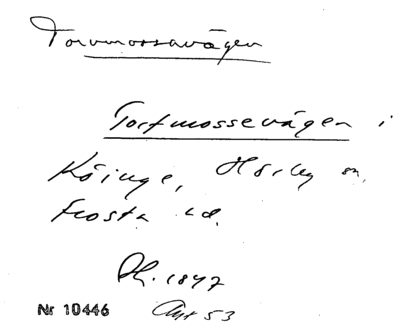 Torvmossavägen
Torfmossevägen i
Köinge, Hörby sn,
Frosta hd.
Dk. 1847
Nr 10446 Akt 53